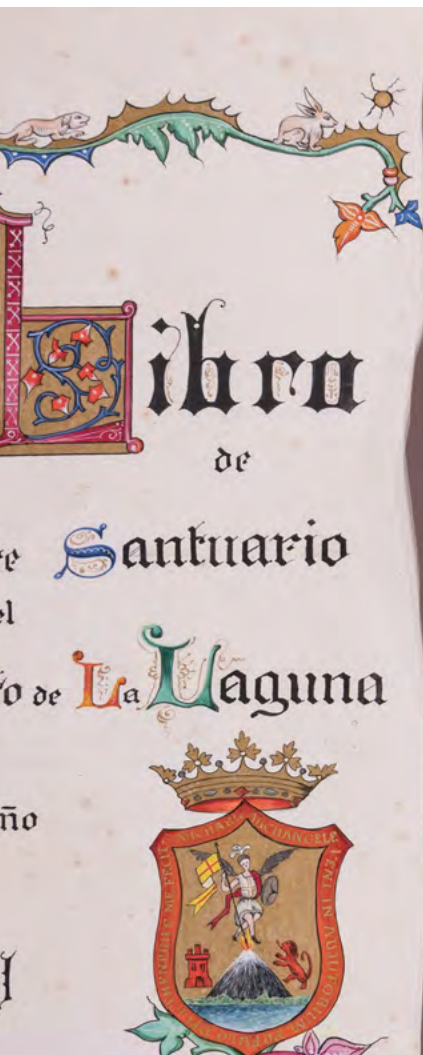 Libro
de
Santuario
el
o de La Laguna
ño
MICHAEL ARCHANGELE VENI IN ADIUTORIUM POPULO DEI ME FECIT